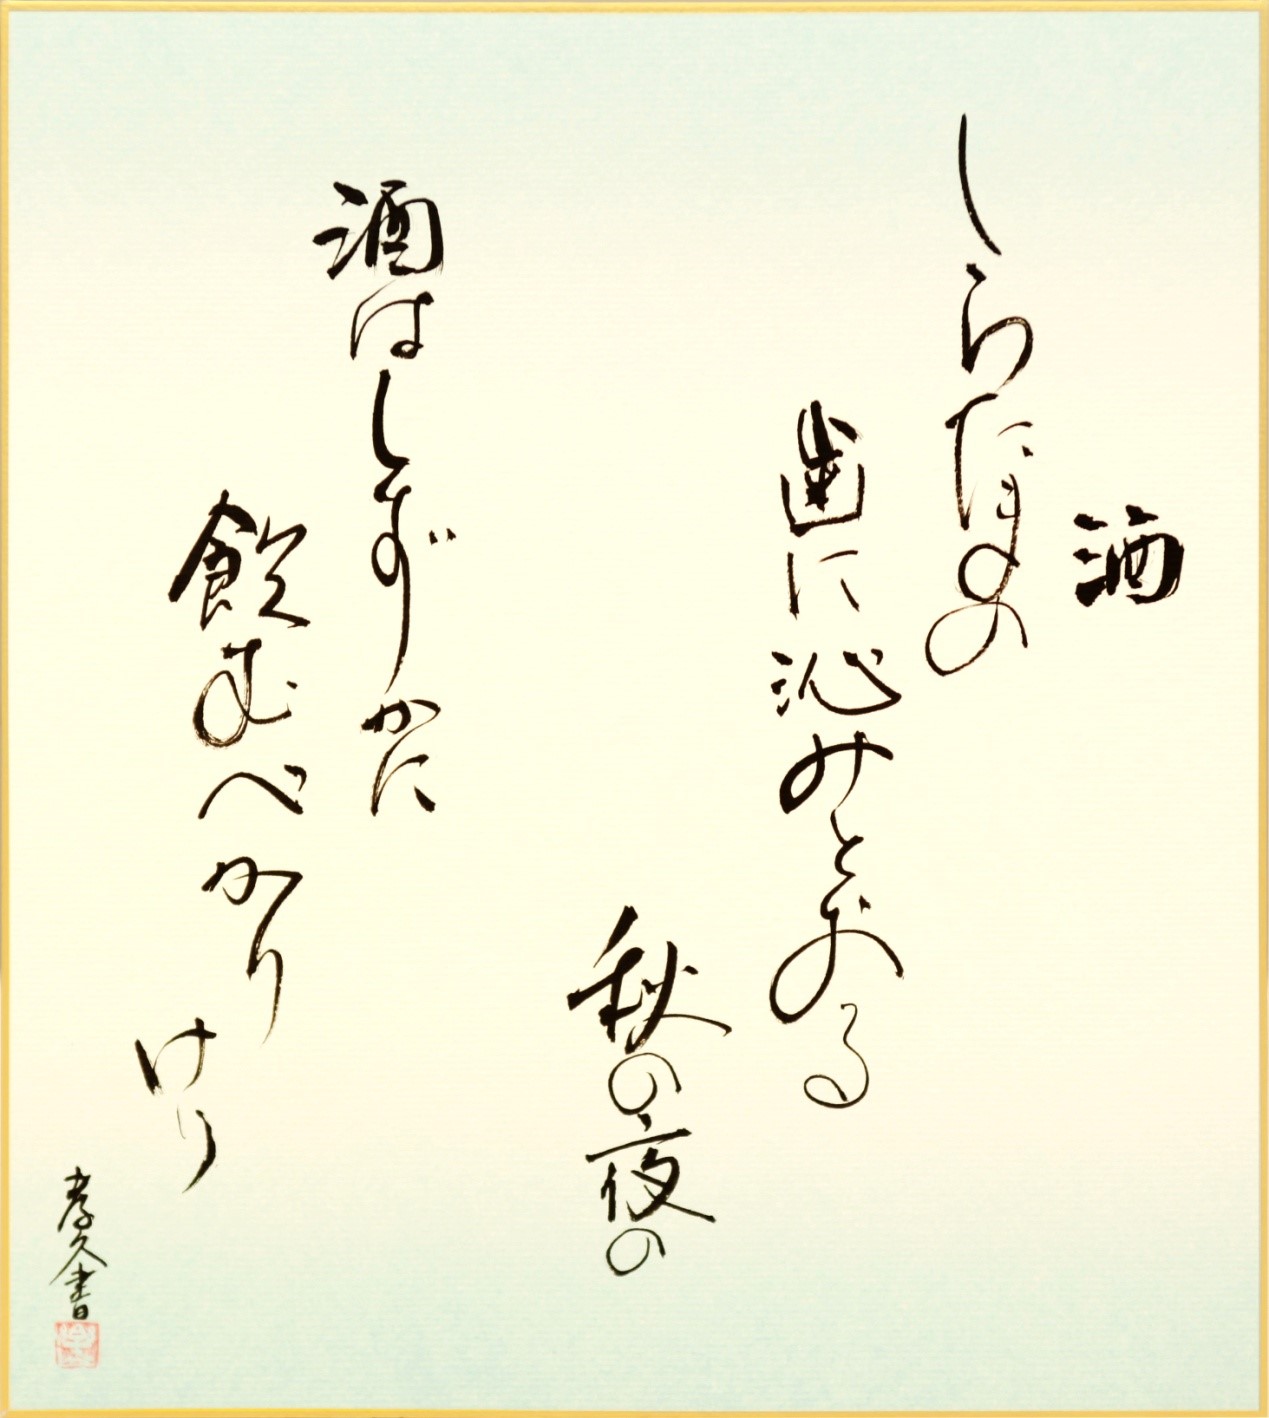 酒
しらたまの
歯に沁みとおる
秋の夜の
酒はしずかに
飲むべかり
けり
孝久書